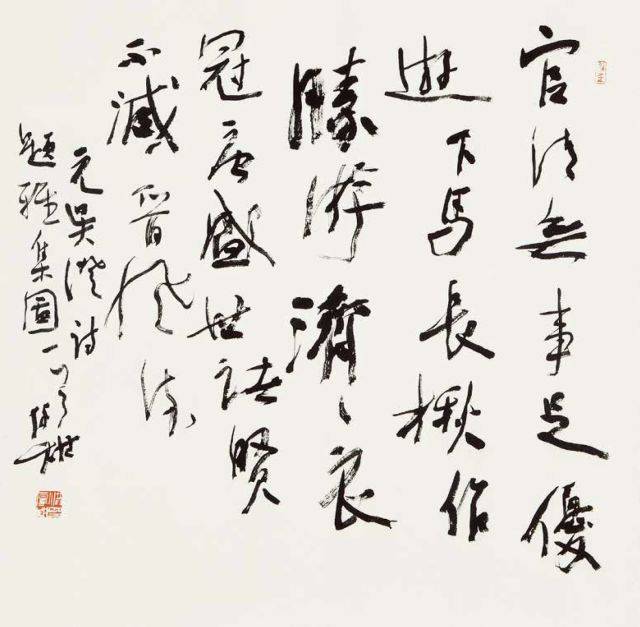 官清無事足優
遊下馬長楸作
勝游濟〻衣
冠唐盛世諸賢
不減晉風流
元吴澄詩
題雅集圖一首